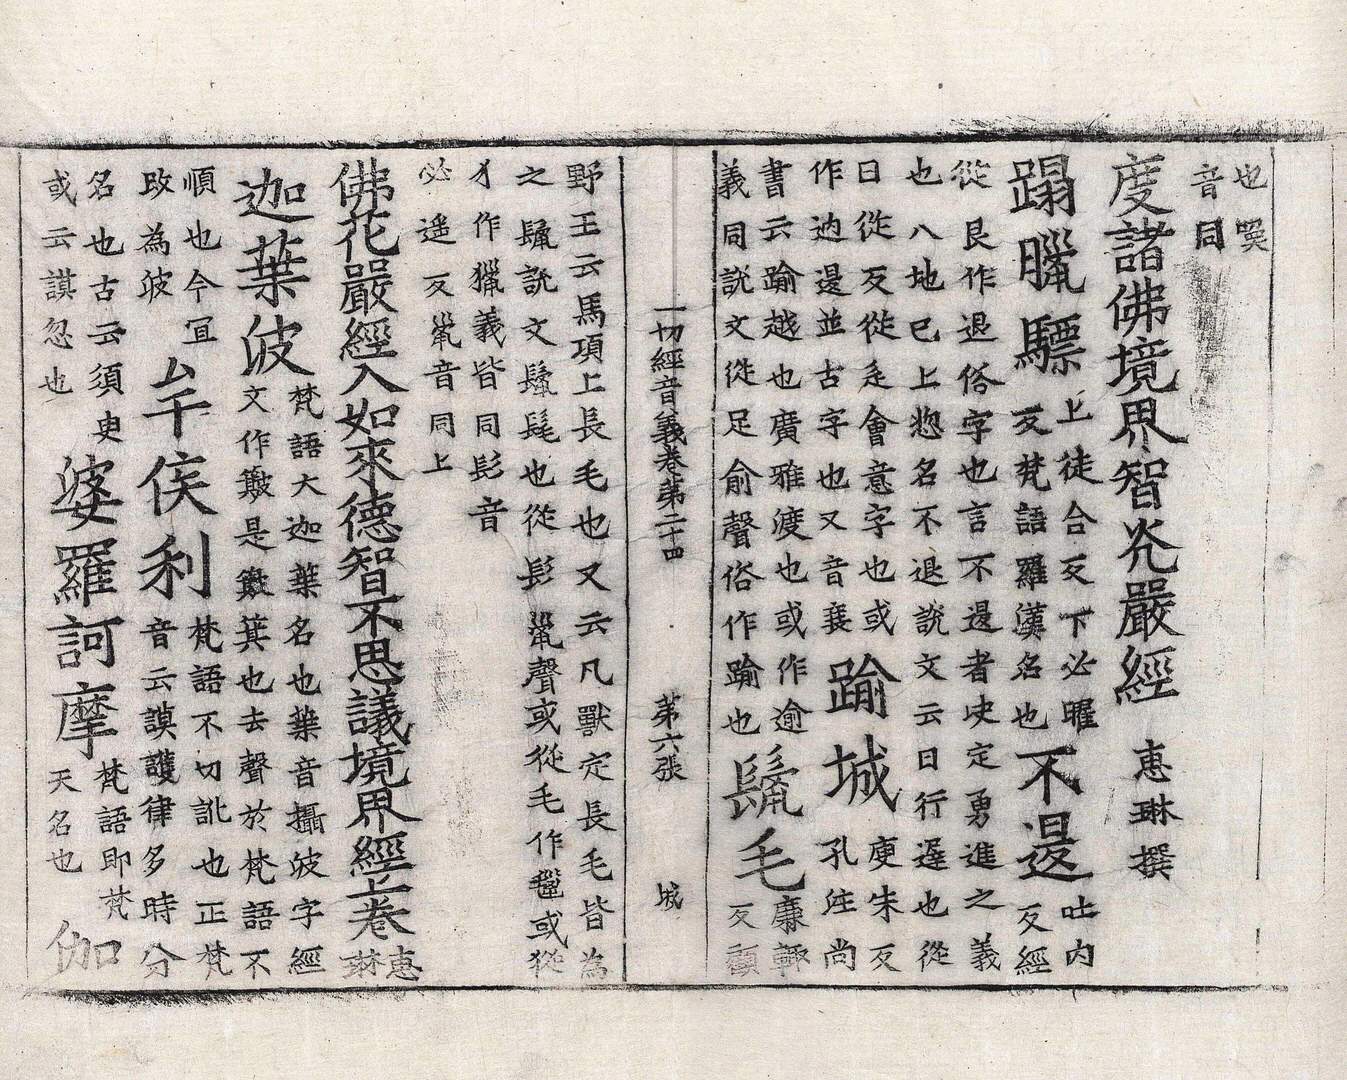 也喫
音同
度諸佛境界智炗嚴經 惠琳撰
蹋臘驃上徒合反下必曜反梵語羅漢名也不退吐内反經
從艮作退俗字也言不退者决定勇進之義
也八地已上惣名不退説文云日行遲也從
日從夊從辵會意字也或
作迡退並古字也又音衮踰城庾朱反孔注尚
書云踰越也廣雅渡也或作逾
義同説文從足俞聲俗作踰也鬣毛廉輙反顧
一切經音義卷第二十四 第六張 城
野王云馬項上長毛也又云凡獸定長毛皆為
之鬣説文鬣髦也從髟巤聲或從毛作或從
犭作獵義皆同髟音
必遥反巤音同上
佛花嚴經入如來德智不思議境界經上卷惠琳
迦葉波梵語大迦葉名也葉音攝波字經
文作簸是簸箕也去聲於梵語不
順也今冝
改為波牟侯利梵語不切訛也正梵
音云謨護律多時分
名也古云須臾
或云謨忽也婆羅訶摩梵語即梵天名也伽